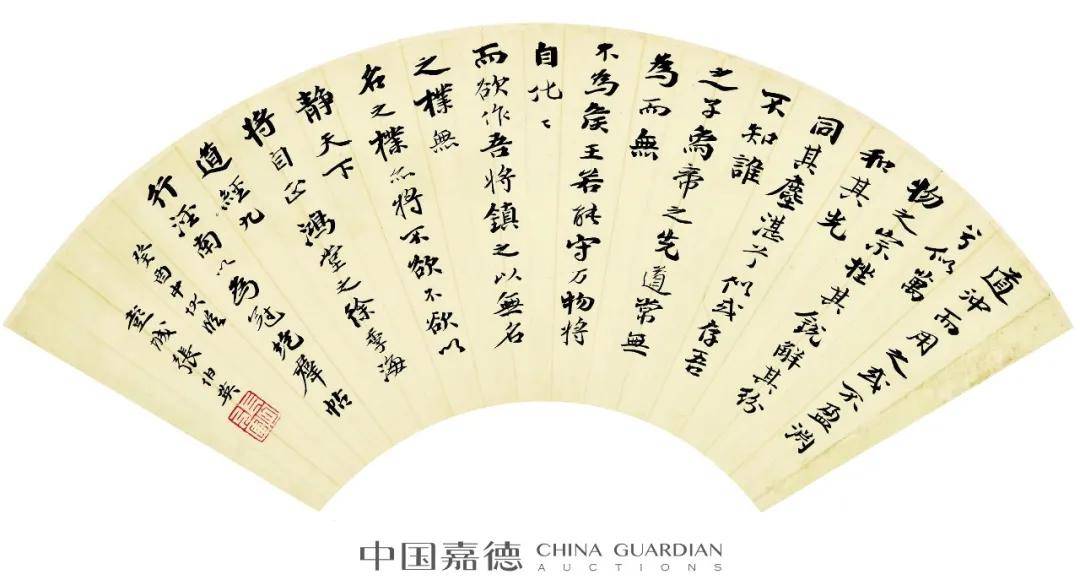 道沖而用之或不盈渊
兮似萬
物之宗挫其銳解其紛
和其光
同其塵湛兮似或存吾
不知誰
之子象帝之先道常無
為而無
不為侯王若能守万物將
自化〻
而欲作吾將鎮之以無名
之樸無
名之樸亦將不欲不欲以
靜天下
將自正 鴻堂之徐季海
道經九
行涇南以為冠絕羣帖
癸酉中伏臨
彭城張伯英
中国嘉德 CHINA GUARDIAN
AUCTIONS